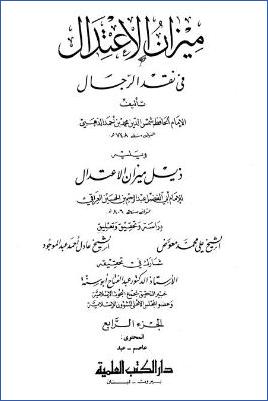 ميزان الاعتدال
في نقد الرجال
تأليف
الإمام الحافظ شمس الدين محمد بن أحمد الذهبي
المتوفى سنة ٧٤٨ هـ
ويليه
ذيل ميزان الاعتدال
للإمام أبي الفضل عبد الرحيم بن الحسين العراقي
المتوفى سنة ٨٠٦ هـ
دراسة وتحقيق وتعليق
الشيخ علي محمد معوض الشيخ عادل أحمد عبد الموجود
شارك في تحقيقه
الأستاذ الدكتور عبد الفتاح أبو سنة
خبير التحقيق بمجمع البحوث الإسلامية
وعضو المجلس الأعلى للشئون الإسلامية
الجزء الرابع
المحتوى:
عاصم - عبد
دار الكتب العلمية
بيروت - لبنان